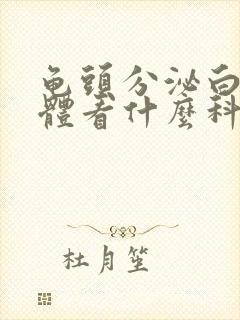 龟頭分泌白
體看什麼科
杜月笙